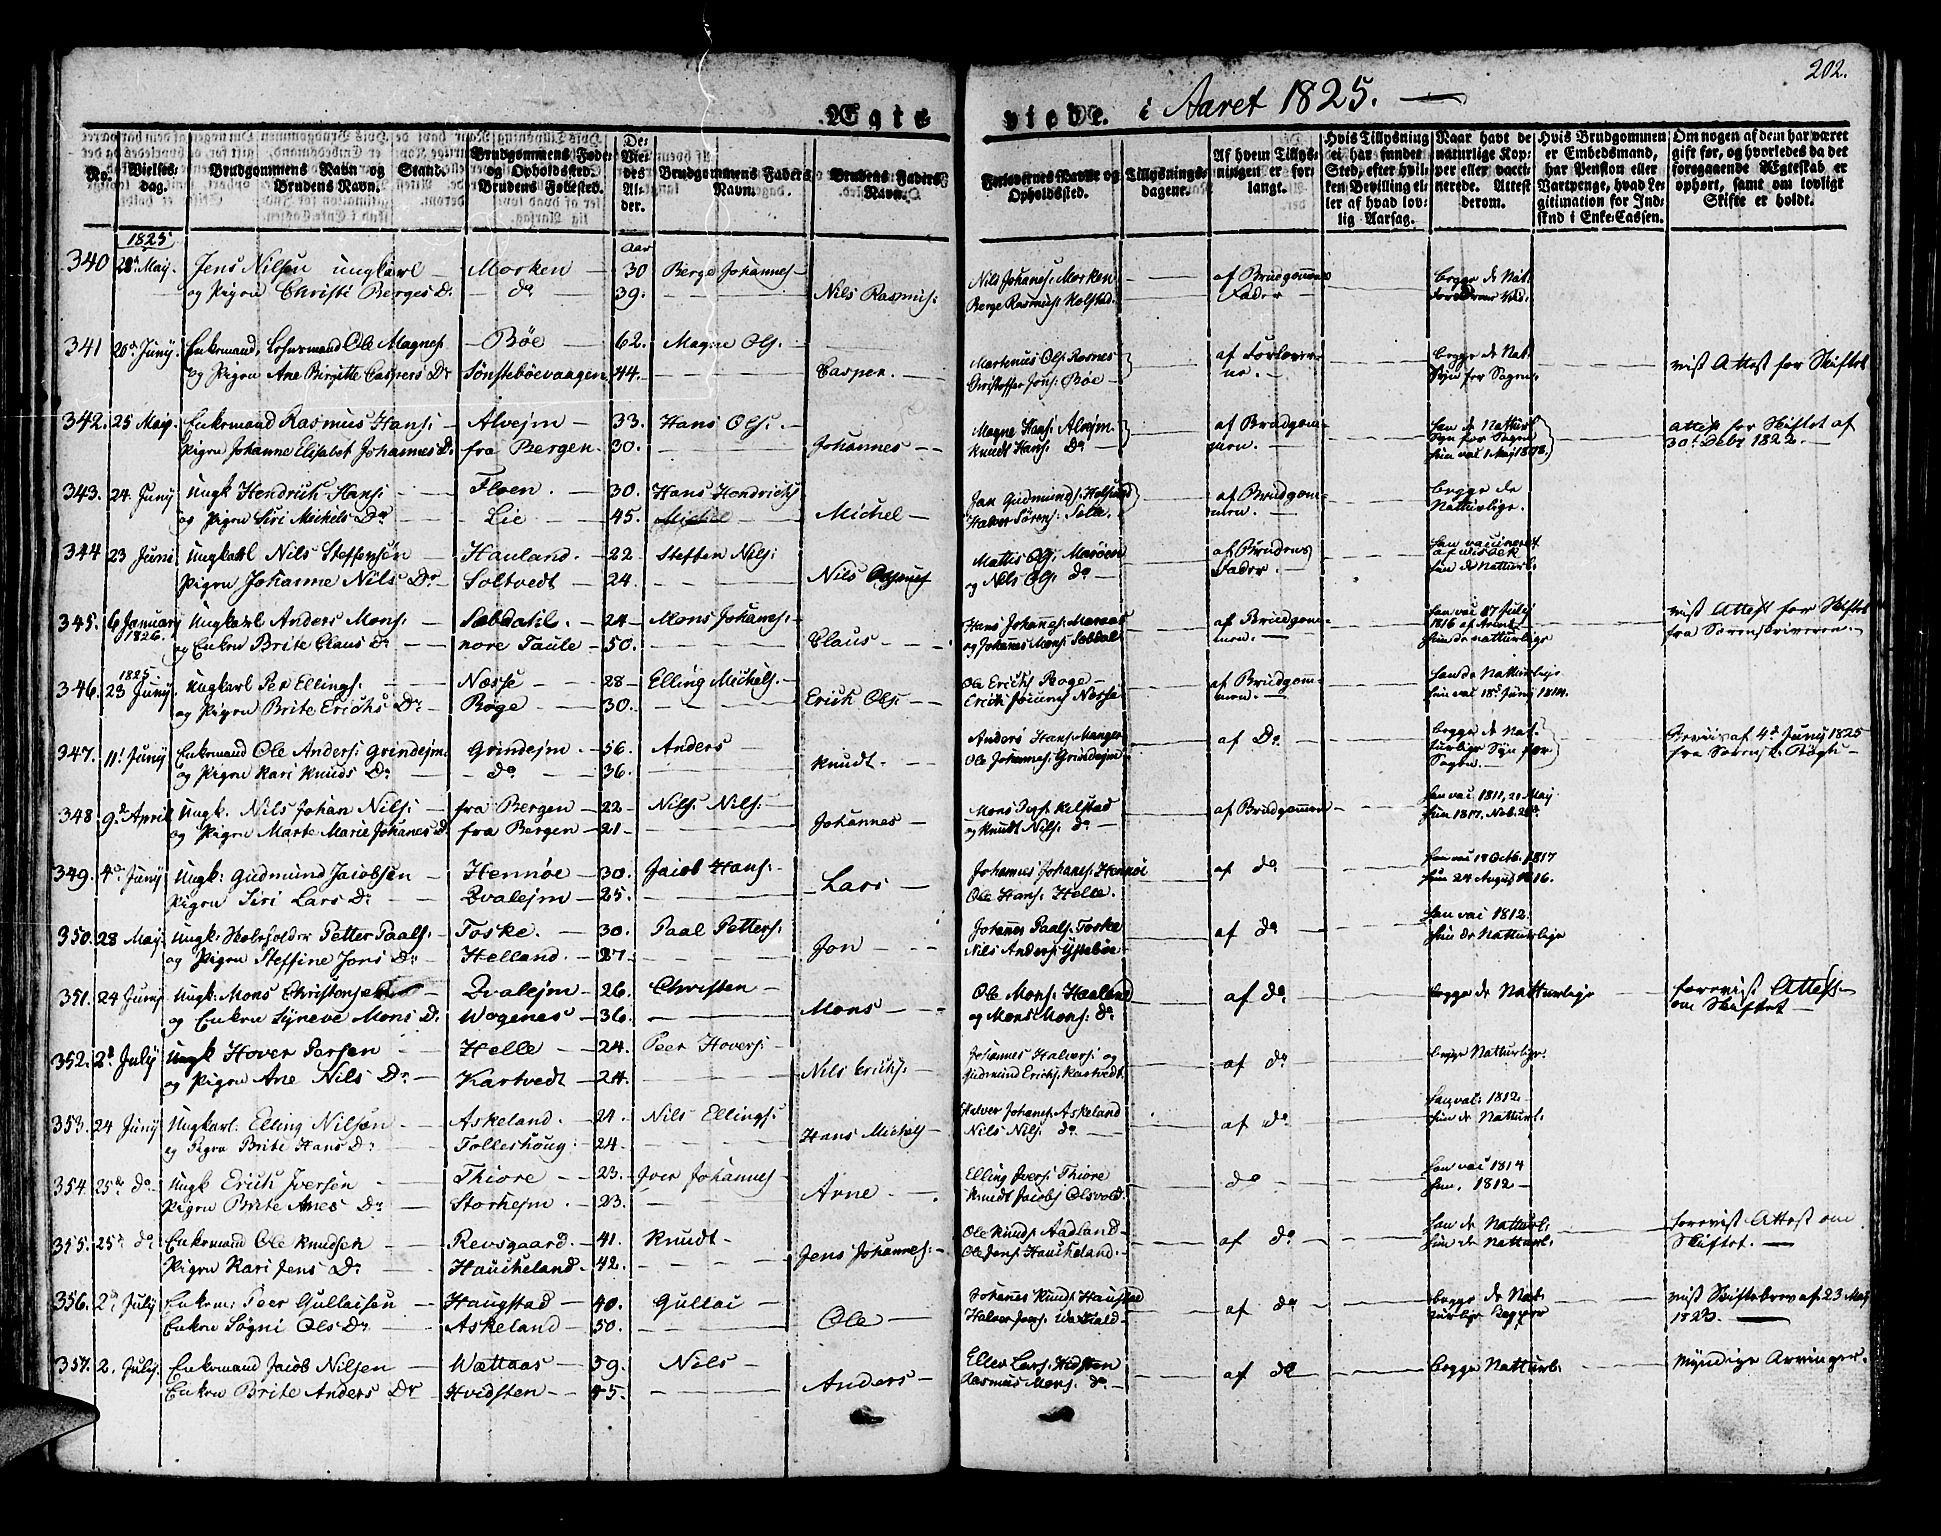 202.
Ægte viede. i Aaret 1825. —
No. | Vielses-dag. | Brudgommens Navn og Stand. Brudens Navn. | Brudgommens Føde- og Opholdssted. Brudens Fødested. | De Viedes Alder. | Brudgommens Faders Navn. | Brudens Faders Navn. | Forlovernes Navne og Opholdssted. | Tillysnings-dagene. | Af hvem Tillysningen er forlangt. | Hvis Tillysning ei har fundet Sted, efter hvilken Bevilling eller af hvad lovlig Aarsag. | Naar havt de naturlige Kopper eller vaccinerede. Attest derom. | Hvis Brudgommen er Embedsmand, har Pension eller Vartpenge, hvad Legitimation for Indskud i Enke-Cassen. | Om nogen af dem har været gift før, og hvorledes da det foregaaende Ægteskab er ophørt, samt om lovligt Skifte er holdt.
1825 Aar
340 28d May. Jens Nilsen ungkarl — Morken — 30 Berge Johannes — Nils Johans: Morken af Brudgommens Fader begge de Nat:
og Pigen Christi Berges Dr. — do — 39. Nils Rasmus: Berge Rasmus: Kolstad.
341 20d Juny. Enkemand, Ole Magnes: — Bøe — 62. Magne Ols: Martenus Ols: Rosnes af Forlover- begge de Nat: vist Attest for Skiftet
og Pigen Ane Birgitte Caspers Dr Sønstebøevaagen 44. Casper. Christoffer Jons: Bøe — ne. — Syn for Sagn:
342. 25 May. Enkemand Rasmus Hans: — Alvejm — 33. Hans Ols: — Magne Hans: Alvejm af Brudgom- han de Natturl: attest for Skiftet af
Pigen Johanne Elisabet Johannes Dr fra Bergen. 30. Johannes — Knudt Hans: do men. — Syn for Sagn 30t Debr 1822. —
hun vac 1 Maj 1808.
343. 24 Juny Ungk Hendrich Hans: — Floen. — 30. Hans Hendrichs Jan Gudmunds: af Brudgom- begge de
og Pigen Siri Michels Dr — Lie — 45. Michel — Halver Sørens: Sele. men. — Natturlige.
344 23 Juni Ungkarl Nils Steffensøn Hauland. — 22 Steffen Nils: Mattis Ols: Marøen af Brudens han vaccineret
Pigen Johanne Nils Dr — Soltvedt — 24. Nils og Nils Ols: do — Fader. — hun de Natturl:
345. 6 January Ungkarl Anders Mons: — Sæbdahl. — 24 Mons Johannes: Hans Johans: Maraas af Brudgom- han vac 17 July vist Attest for Skiftet
1826. og Enken Brite Claus Dr — nore Taule — 50. Claus — og Johannes Mons: Sæbdal men. — 1816 hun de natturlige fra Sorenskriveren. —
1825
346. 23 Juny. Ungkarl Per Ellings: — Næsse — 28 Elling Michels. — Ole Erichs Roge — af Brudgom- han de Natturlige
og Pigen Brite Erichs Dr — Røge — 30. Erich Ols: — Erich Næsse men. — hun vac 18 Juny 1814.
347. 11t Juny Enkemand Ole Anders: Grindejm. Grindejm. — 56. Anders — Anders Hans: Manger af Do begge de Nat- Bevis af 4d Juny 1825
og Pigen Kari Knuds Dr — do — 36. Knudt. — Ole Johannes: Grindejm turlige Syn for Sagn. fra Sorensk: Bøgh —
348 9de April Ungk. Nils Johan Nils: — fra Bergen — 22 — Nils: Nils: — Mons Kilstad af Brudgommen han vac 1811, 21 May
og Pigen Marte Marie Johanes Dr fra Bergen — 21 Johannes — og Knudt Nils: do — hun 1817. Nob. 26d
349. 4de Juny Ungk: Gudmund Jacobsen — Hennøe — 30. Jacob Hans: — Johannes Johans: Hennøe af do han vac 18 Octb. 1817
Pigen Siri Lars Dr — Dvalejm — 25. Lars — Ole Hans: Helle. hun 24 August 1816.
350. 28 May. Ungk: Skoleholder Petter Paals: — Toske. — 30. Paal Petters: Johannes Paals: Toske af do han vac 1812.
og Pigen Steffine Jons Dr — Helland. — 27. Jon — Nils Anders: Ystebøe hun de Natturlige
351. 24 Juny Ungk: Mons Christens — Dvalejm — 26. Christen — Ole Mons: Haaland af do begge de Natturlige forevist Attest
og Enken Syneve Mons Dr. Wogenes — 36. Mons — og Mons Mons: do om Skiftet —
352. 2d July Ungk Hover Persen — Helle — 24. Peer Hovers: — Johannes Halvers: og af do begge Natturlige.
og Pigen Ane Nils Dr — Kartvedt — 24. Nils Erichs: Gudmund Erichs: Kartvedt
353. 24 Juny Ungkarl: Elling Nilsøn — Askeland. 24. Nils Ellings: Halver Johans: Askeland af do han vac: 1812.
og Pigen Brite Hans Dr: Folleshoug: 24 — Hans Michels — Nils Nils: do — hun de Natturl:
354. 25de do Ungk Erich Iversen — Thiore — 23. Iver Johannes — Elling Ivers: Thiore do han vac 1814
Pigen Brite Anes Dr: — Storhejm. — 23. Arne — Knudt Jacobs Olsvold. hun. 1812 —
355. 25d do Enkemand Ole Knudsen — Revsgaard. — 41. Knudt — Ole Knuds: Aadland — af do han de Natturl: forevist Attest om
Pigen Kari Jens Dr — Haucheland. — 42. Jens Johannes: — Ole Jens: Haucheland. — hun de Natturl: Skiftet. —
356. 2d July Enkem: Peer Gullacsen — Haugstad — 40. Gullac — Johanes Knuds: Haustad af do begge de Nat- vist Skiftebrev af 23 May
Enken Søgni Ols Dr — Askeland — 50. Ole — Halver Jens: turlige Kopper 1823. —
357. 2. July. Enkemand Jacob Nilsen — Wættaas — 59. Nils — Eller Lars: Hidsten af do begge Natturl: Myndige Arvinger.
Enken Brite Anders Dr Hvidsten — 45. Anders — Rasmus Mons: do —